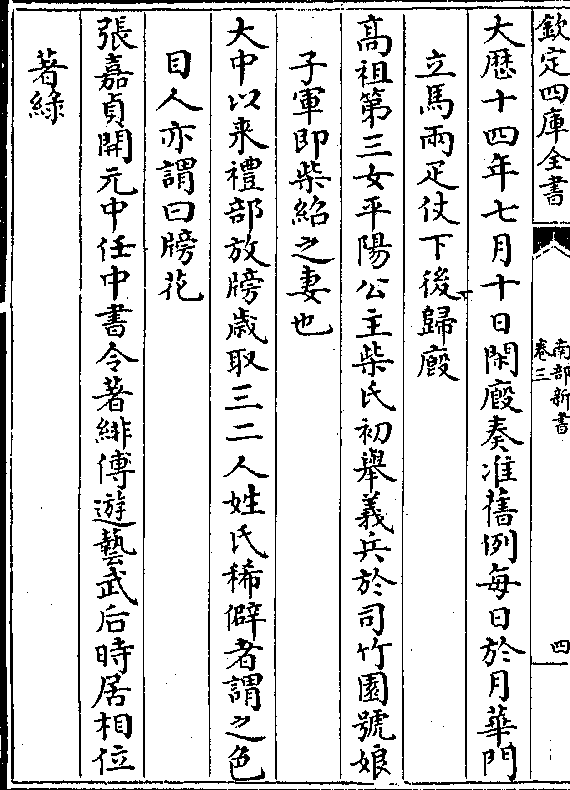 欽定四庫全書
南部新書
卷三
四
大歴十四年七月十日閑廏奏准舊例每日於月華門
立馬兩疋仗下後歸廏
高祖第三女平陽公主柴氏初舉義兵於司竹園號娘
子軍即柴紹之妻也
大中以来禮部放牓歲取三二人姓氏稀僻者謂之色
目人亦謂曰牓花
張嘉貞開元中任中書令著緋傅遊藝武后時居相位
著綠